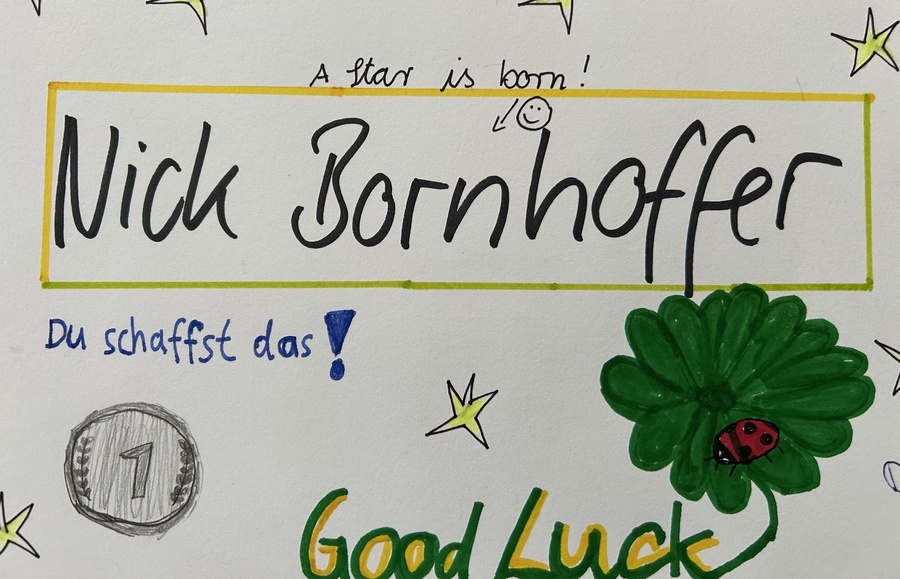 A Star is born!
Nick Bornhoffer
Du schaffst das!
1
Good Luck